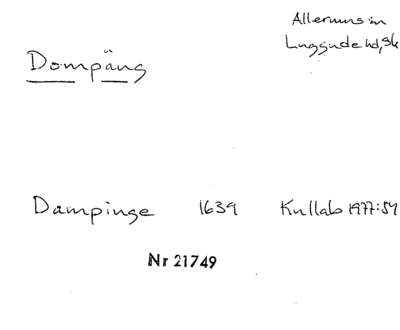 Allerums sn
Luggude hd, Sk
Dompäng
Dampinge 1639 Kullab 1977:54
Nr 21749